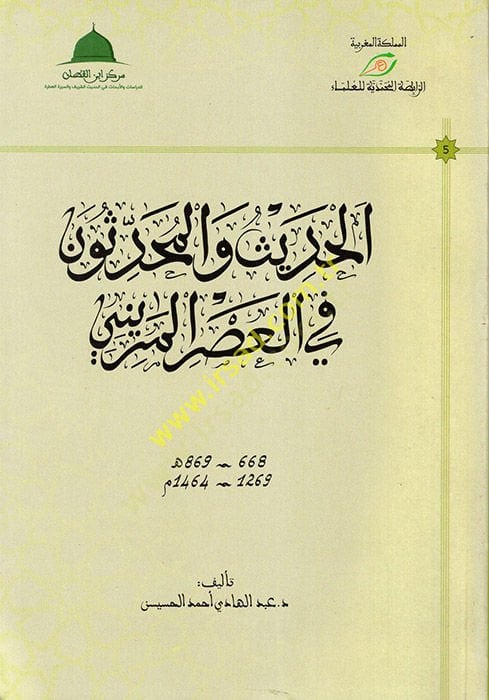 المملكة المغربية
الرابطة المحمدية للعلماء
مركز ابن القطان
للدراسات والأبحاث في الحديث الشريف والسيرة العطرة
5
الحَدِيْثُ وَالمُحَدِّثُونَ
في العَصْرِ المَرِينِي
668 ~ 869هـ
1269 ~ 1464م
تأليف:
د. عبد الهادي أحمد الحسيسن